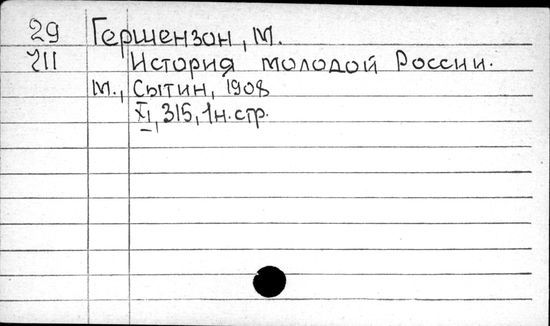 29 Гершензон, М.
711 История молодой России.
М., Сытин, 1908
XI, 315, 1н.стр.